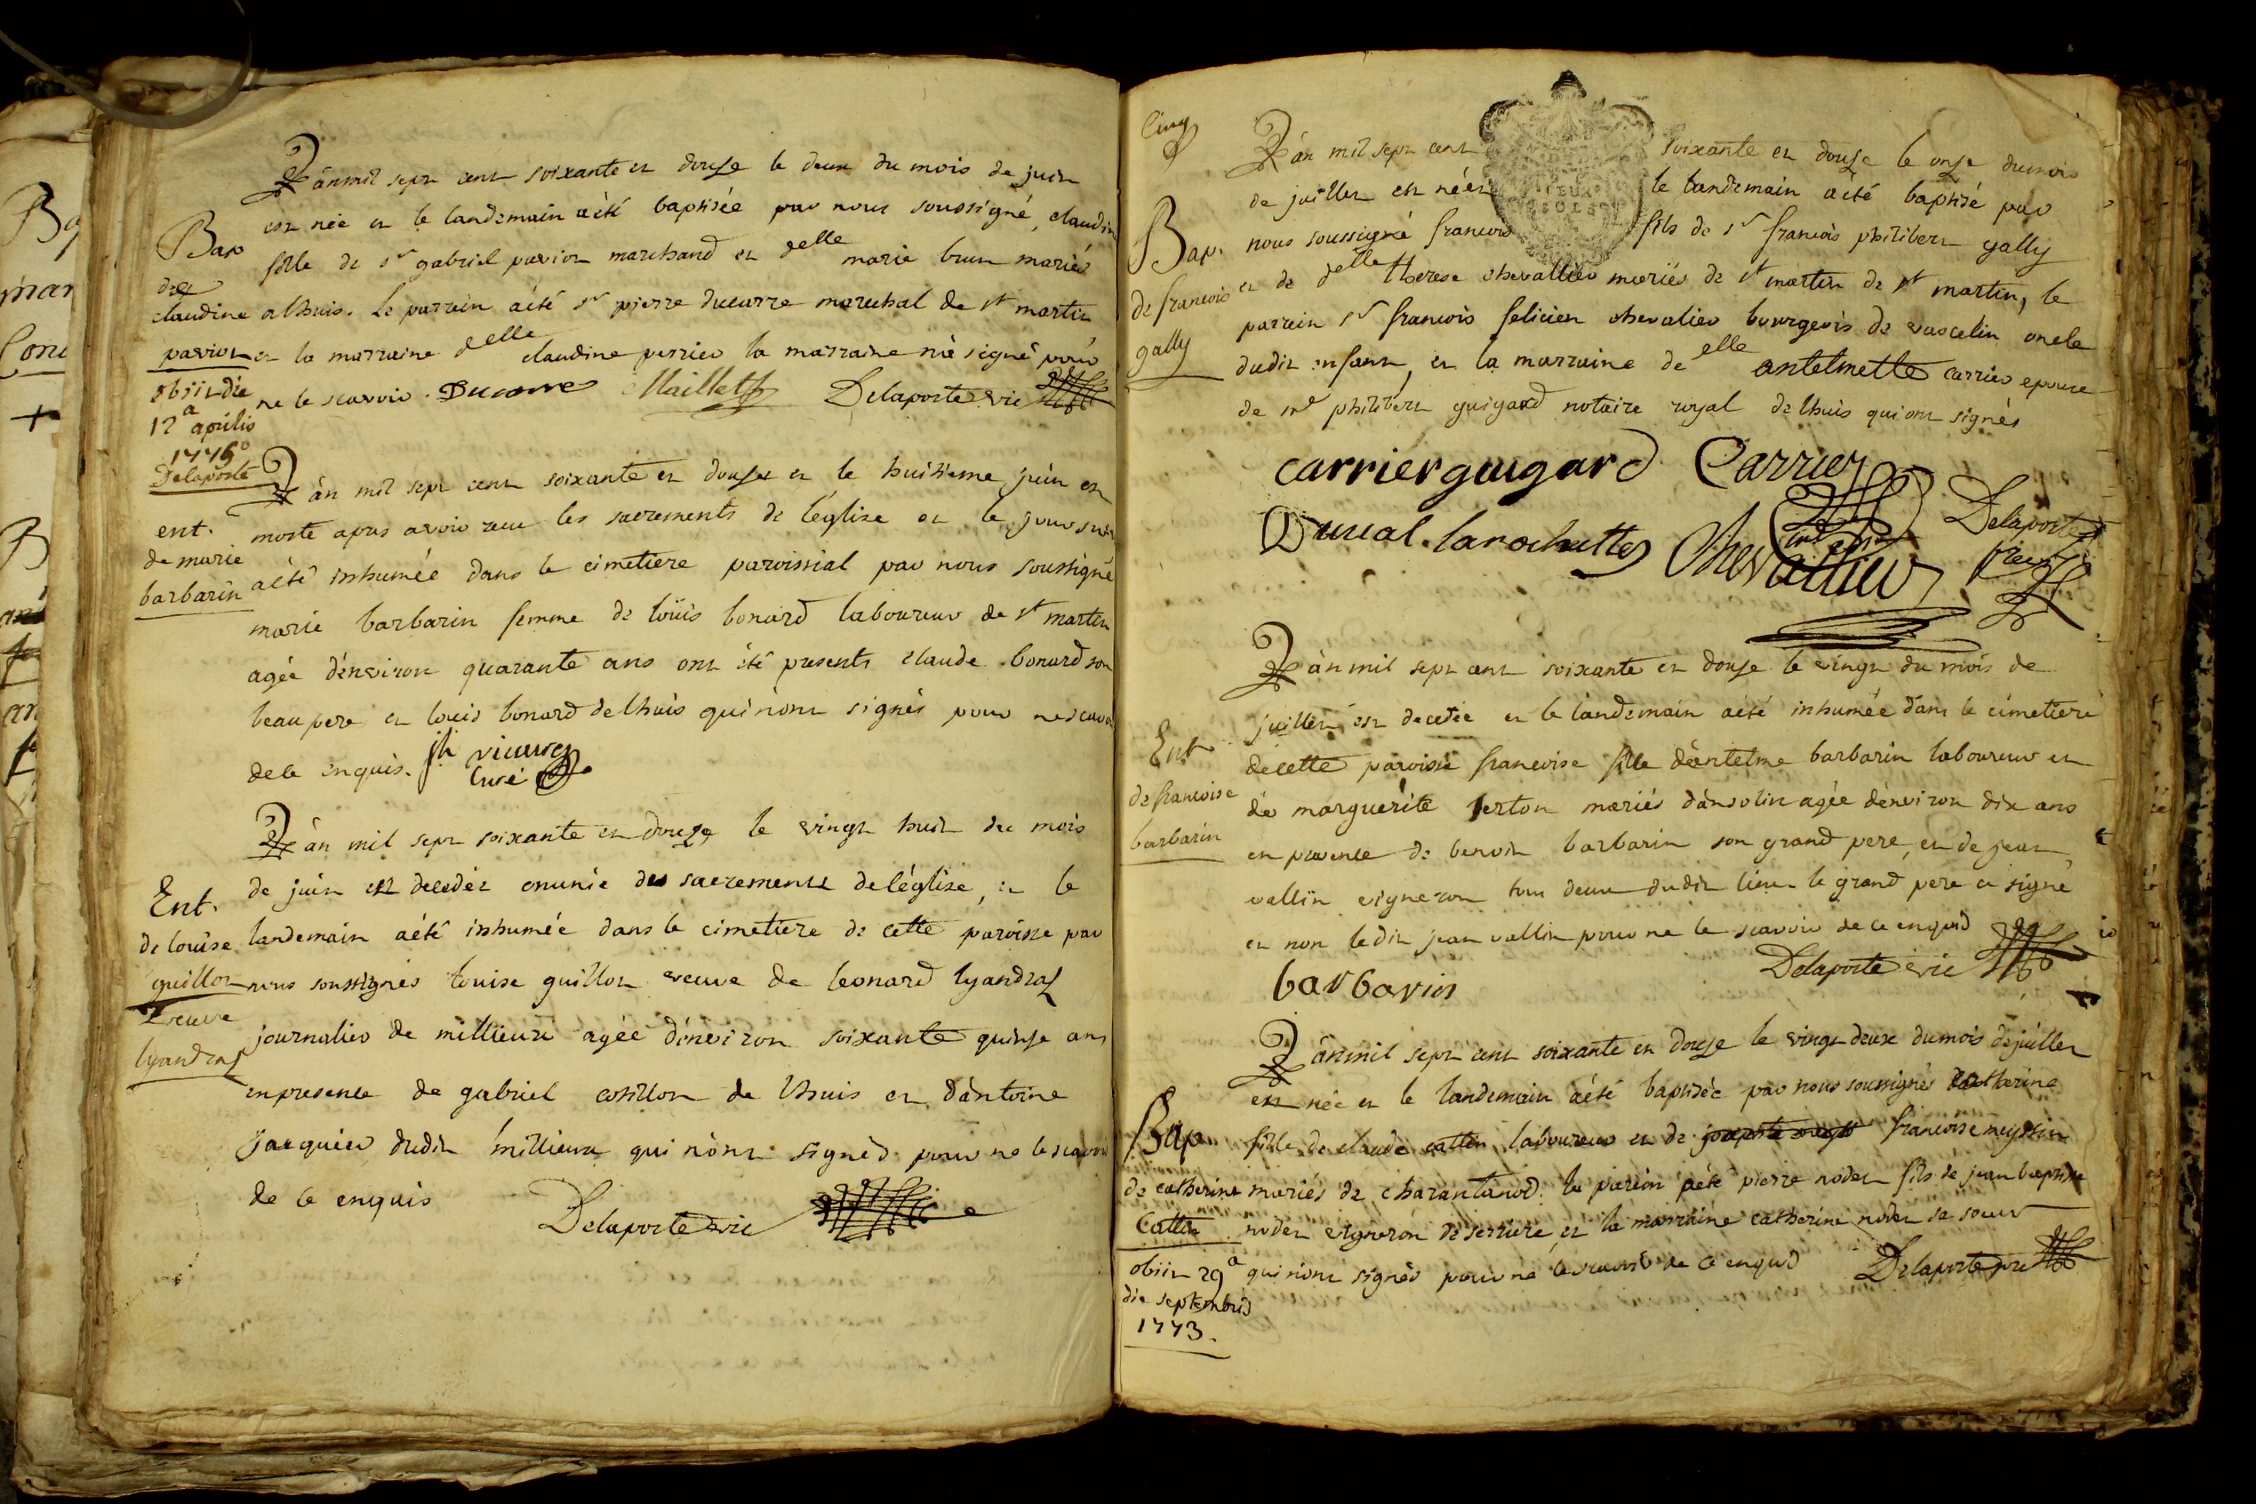 Bap
de
claudine
pavion
obiit die
12a aprilis
1776
Delaporte
L'an mil sept cent soixante et douse le deux du mois de juin
est née et le landemain a été baptisée par nous soussigné, claudine
fille de sr gabriel pavion marchand et delle marie brun mariés
a lhuis. Le parrain a été sr pierre ducarre marechal de st martin
et la marraine delle claudine perrier la marraine n'a signé pour
ne le scavoir. Ducarre Maillet Delaporte vic
ent.
de marie
barbarin
L'an mil sept cent soixante et douse et le huitieme juin est
morte apres avoir recu les sacrements de l'église et le jour
a été inhumée dans le cimetiere paroissial par nous soussigné
marie barbarin femme de loüis bonard laboureur de st martin
agée d'environ quarante ans ont été presents claude bonard son
beau pere et louis bonard de lhuis qui n'ont signés pour ne scavoir
de ce enquis. curé
Ent.
de louise
guillot
veuve
lyandras
L'an mil sept soixante et douse le vingt huit du mois
de juin est decedée munie des sacrements de l'église, et le
landemain a été inhumée dans le cimetiere de cette paroisse par
nous soussignés louise guillot veuve de leonard lyandras
journalier de millieux agée d'environ soixante quinse ans
en presence de gabriel cotillon de lhuis et d'antoine
jacquier dudit millieux qui n'ont signés pour ne le scavoir
de ce enquis
Delaporte vic
Cinq
Bap.
de francois
gally
L'an mil sept cent soixante et douse le onse du mois
de juillet est né et le landemain a été baptisé par
nous soussigné francois fils de sr francois philibert gally
et de delle therese chevallier mariés de st martin de st martin, le
parrein sr francois felicien chevalier bourgeois de vascelin oncle
dudit enfant, et la marraine de elle antelmette carrier epouse
de me philibert guigard notaire royal de lhuis qui ont signés
carrier guigard Carrier
Duscal larochette Chevallier Delaporte
L'an mil sept cent soixante et douse le vingt du mois de
juillet est decedée et le landemain a été inhumée dans le cimetiere
Ent
de francoise
barbarin
de cette paroisse francoise fille d'antelme barbarin laboureur et
de marguerite berton mariés d'ansolin agée d'environ dix ans
en presence de benoit barbarin son grand pere, et de jean
vallin vigneron tous deux dudit lieu le grand pere a signé
et non ledit jean vallin pour ne le scavoir de ce enquis
barbarin Delaporte vic
Bap
de catherine
Cattin
obiit 29a
die septembris
1773.
L'an mil sept cent soixante et douse le vingt deux du mois de juillet
est née et le landemain a été baptisée par nous soussignés catherine
fille de claude cattin laboureur et de francoise
mariés de charantanod. le parein a été pierre nodet fils de jean baptiste
nodet vigneron de sertiere, et la marraine catherine nodet sa soeur
qui n'ont signés pour ne le scavoir de ce enquis Delaporte